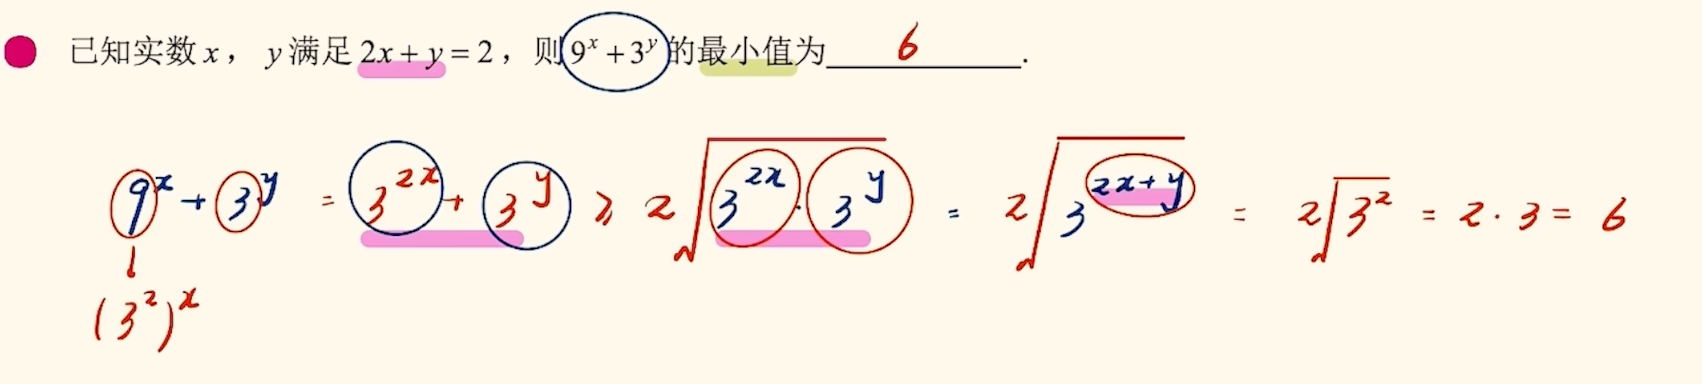 已知实数 x， y 满足 2x + y = 2，则 9ˣ + 3ʸ 的最小值为 6 .
9ˣ + 3ʸ = 3²ˣ + 3ʸ ≥ 2√(3²ˣ · 3ʸ) = 2√(3²ˣ⁺ʸ) = 2√(3²) = 2 · 3 = 6
(3²)ˣ